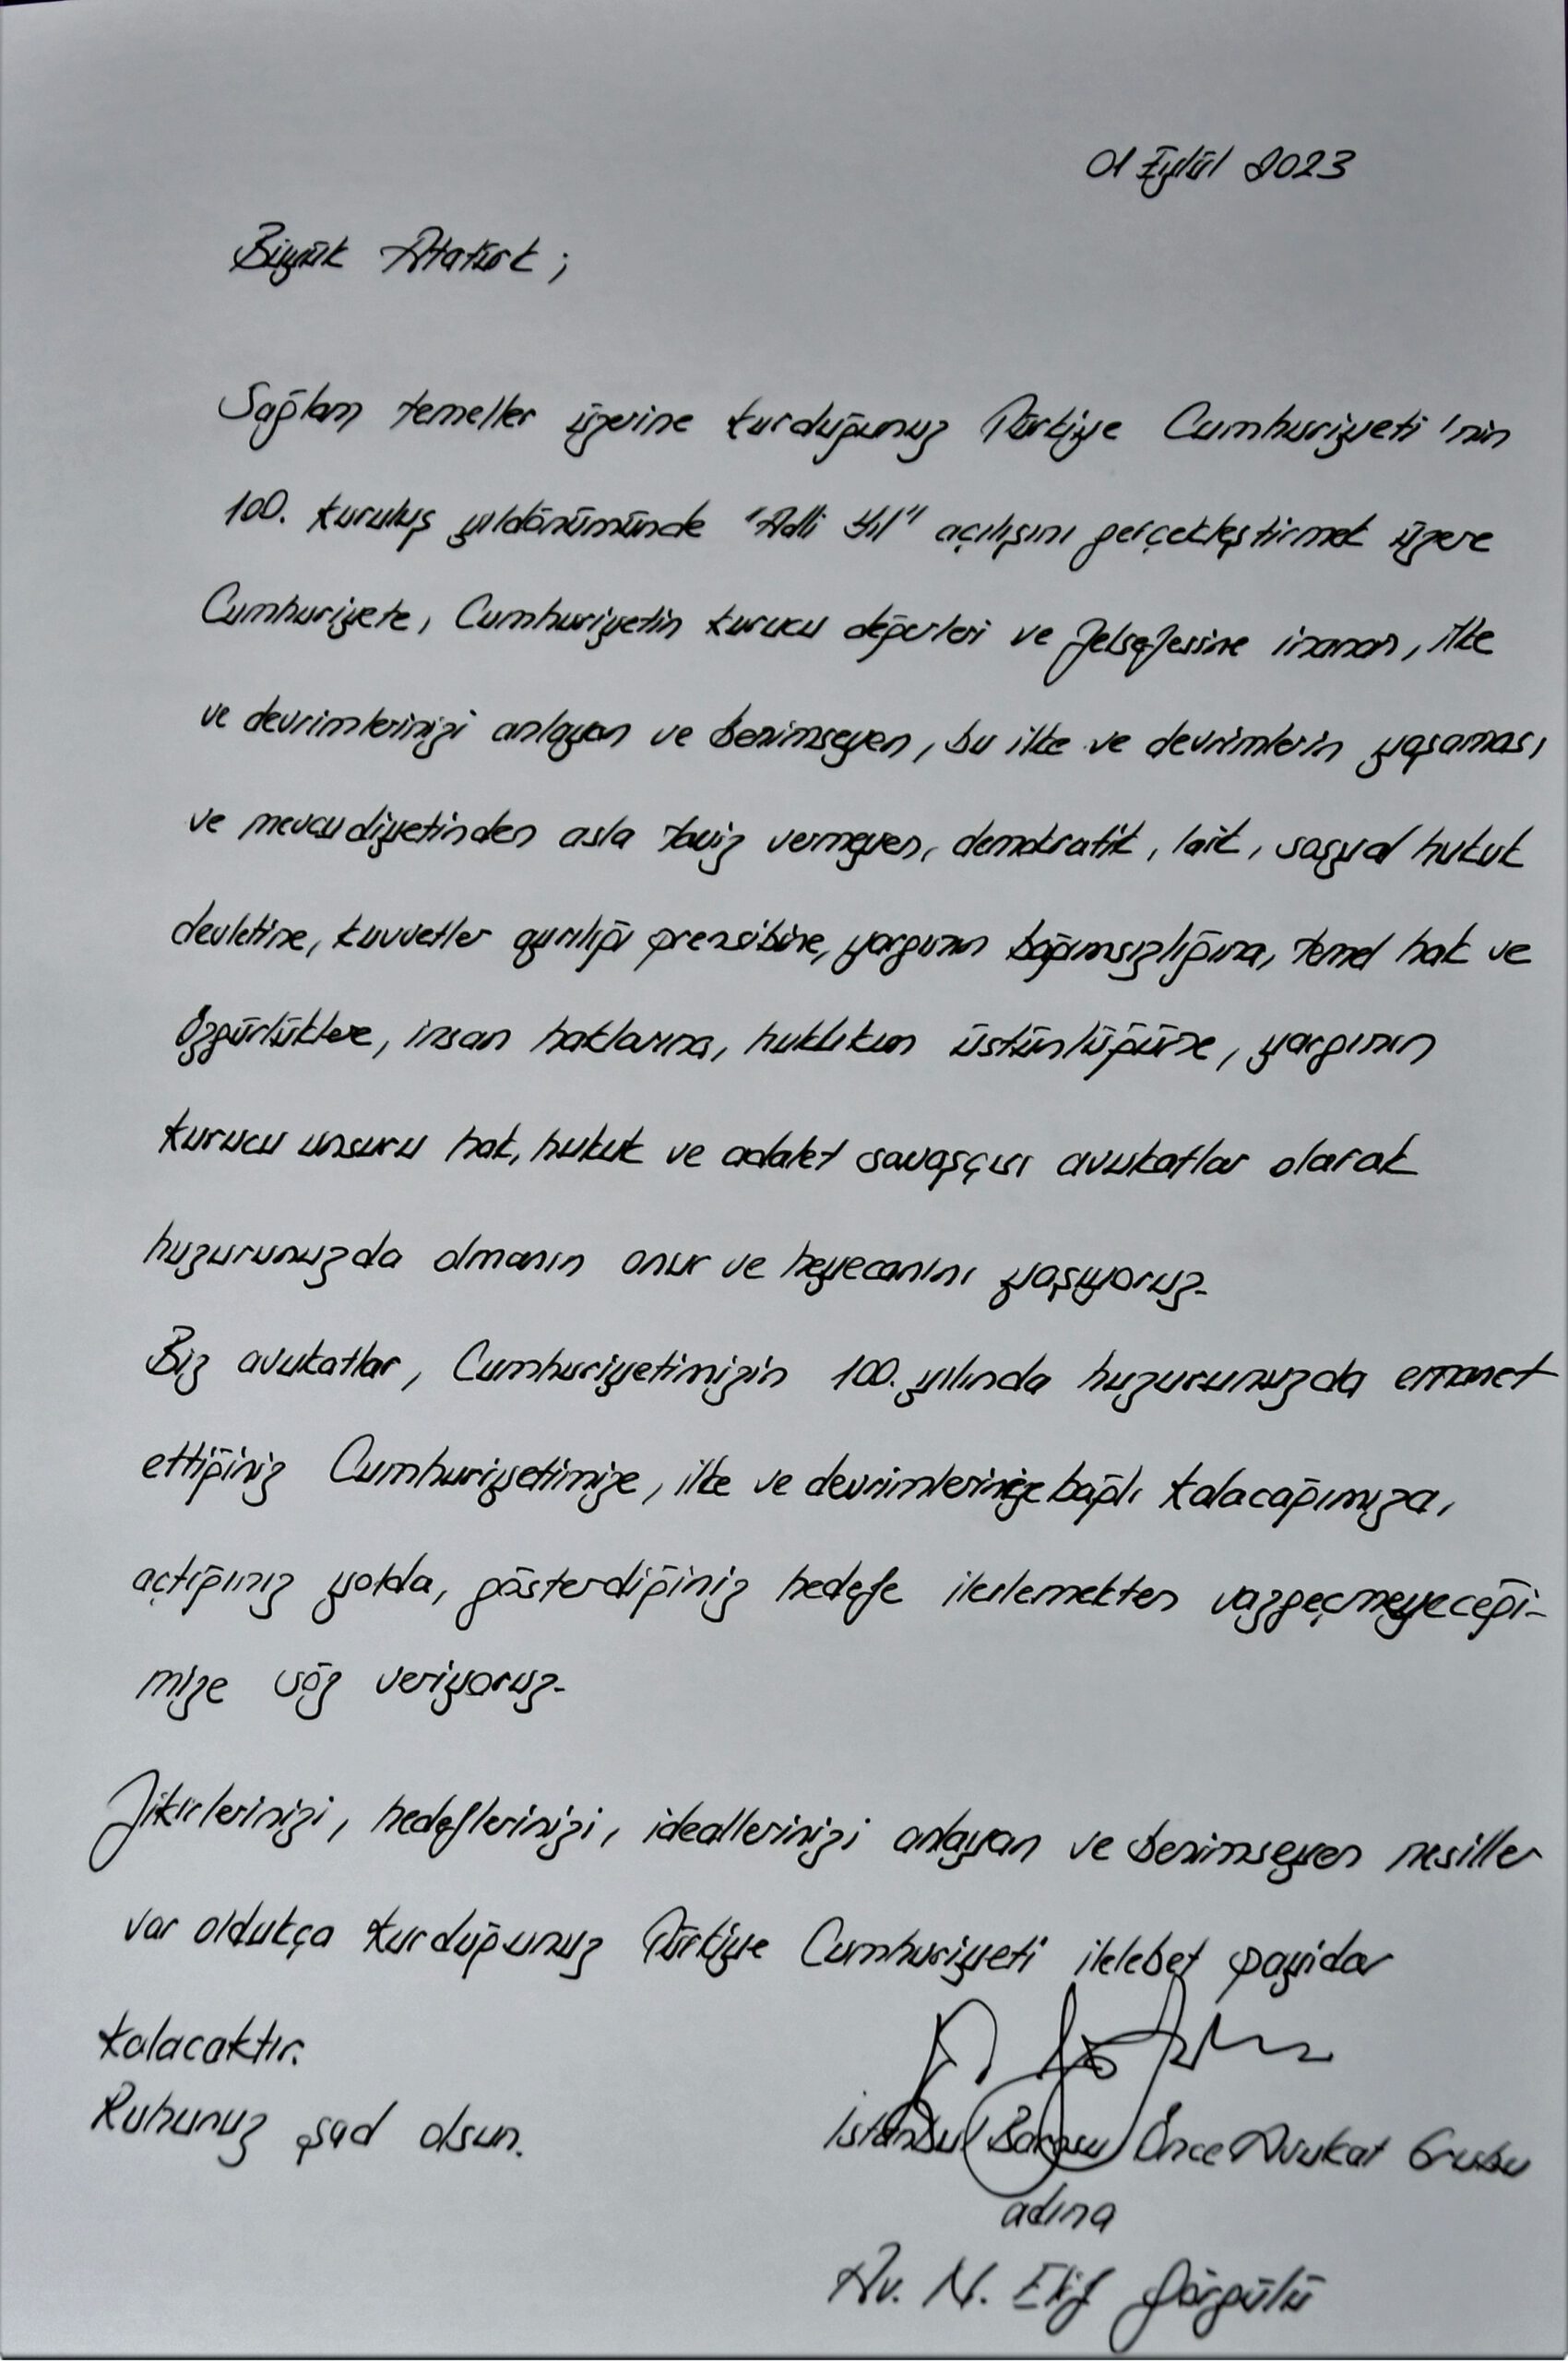 01 Eylül 2023
Büyük Atatürk;
Sağlam temeller üzerine kurduğunuz Türkiye Cumhuriyeti'nin
100. kuruluş yıldönümünde "Adli Yıl" açılışını gerçekleştirmek üzere
Cumhuriyete, Cumhuriyetin kurucu değerleri ve felsefesine inanan, ilke
ve devrimlerinizi anlayan ve benimseyen, bu ilke ve devrimlerin yaşaması
ve mevcudiyetinden asla taviz vermeyen, demokratik, laik, sosyal hukuk
devletine, kuvvetler ayrılığı prensibine, yargının bağımsızlığına, temel hak ve
özgürlüklere, insan haklarına, hukukun üstünlüğüne, yargının
kurucu unsuru hak, hukuk ve adalet savaşçısı avukatlar olarak
huzurunuzda olmanın onur ve heyecanını yaşıyoruz.
Biz avukatlar, Cumhuriyetimizin 100. yılında huzurunuzda emanet
ettiğiniz Cumhuriyetimize, ilke ve devrimlerinize bağlı kalacağımıza,
açtığınız yolda, gösterdiğiniz hedefe ilerlemekten vazgeçmeyeceği-
mize söz veriyoruz.
Fikirlerinizi, hedeflerinizi, ideallerinizi anlayan ve benimseyen nesiller
var oldukça kurduğunuz Türkiye Cumhuriyeti ilelebet payidar
kalacaktır.
Ruhunuz şad olsun.
İstanbul Barosu Önce Avukat Grubu
adına
Av. N. Elif Görgülü